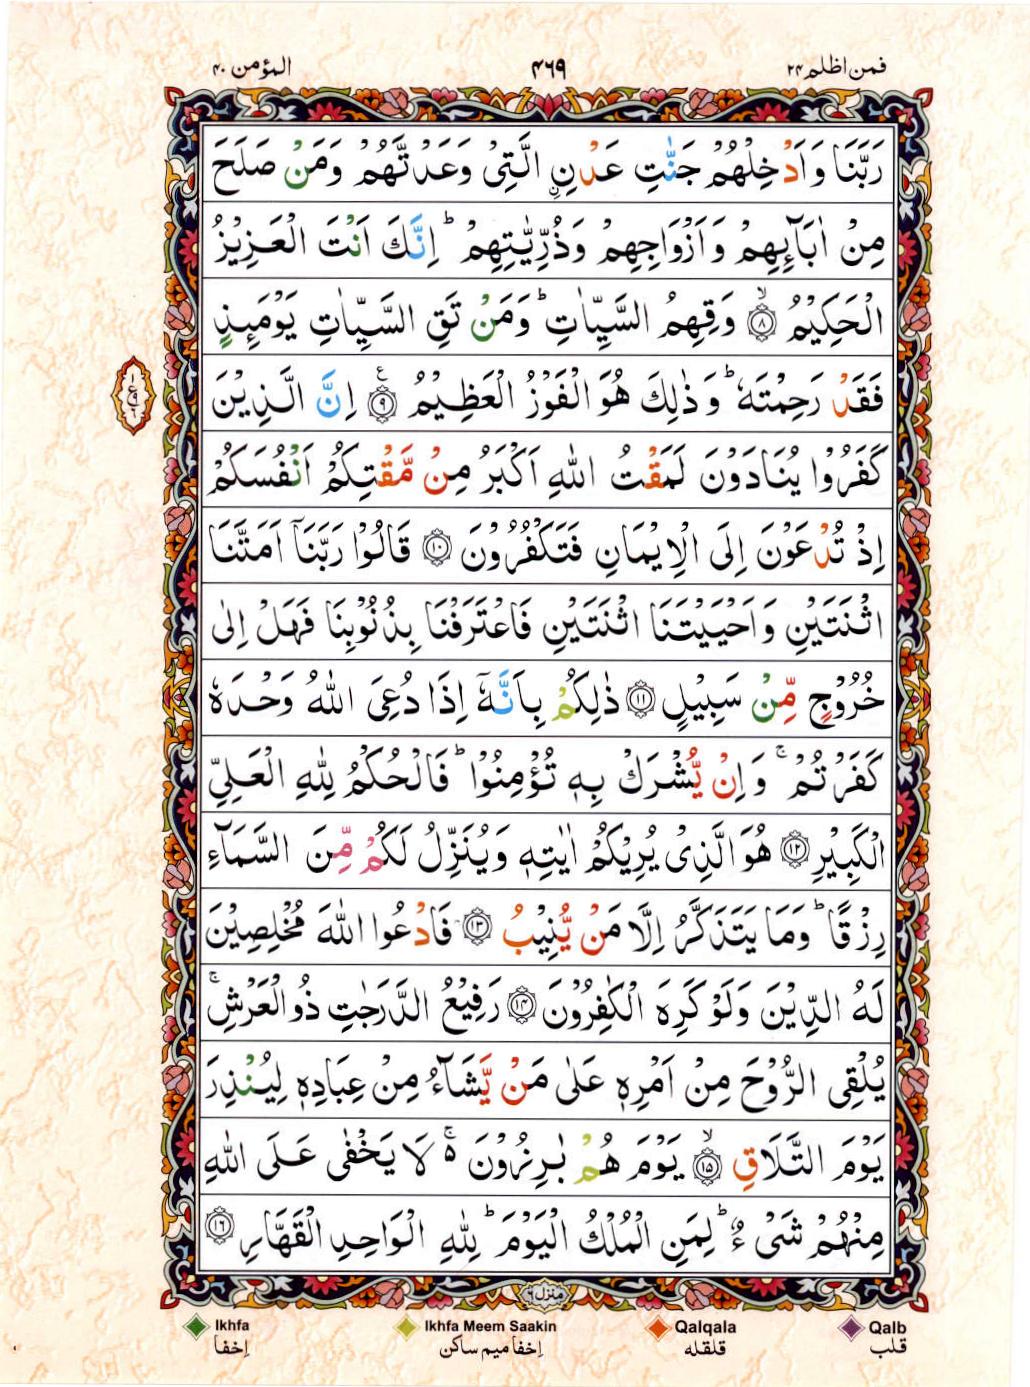 فمن اظلم ۲۴ ۴۶۹ المؤمن ۴۰
رَبَّنَا وَاَدْخِلْهُمْ جَنّٰتِ عَدْنِ ۨ الَّتِیْ وَعَدْتَّهُمْ وَمَنْ صَلَحَ
مِنْ اٰبَآىِٕهِمْ وَاَزْوَاجِهِمْ وَذُرِّیّٰتِهِمْ ؕ اِنَّكَ اَنْتَ الْعَزِیْزُ
الْحَكِیْمُ ۙ﴿۸﴾ وَقِهِمُ السَّیِّاٰتِ ؕ وَمَنْ تَقِ السَّیِّاٰتِ یَوْمَىِٕذٍ
فَقَدْ رَحِمْتَهٗ ؕ وَذٰلِكَ هُوَ الْفَوْزُ الْعَظِیْمُ ﴿۹﴾ ع اِنَّ الَّذِیْنَ
كَفَرُوْا یُنَادَوْنَ لَمَقْتُ اللّٰهِ اَكْبَرُ مِنْ مَّقْتِكُمْ اَنْفُسَكُمْ
اِذْ تُدْعَوْنَ اِلَی الْاِیْمَانِ فَتَكْفُرُوْنَ ﴿۱۰﴾ قَالُوْا رَبَّنَاۤ اَمَتَّنَا
اثْنَتَیْنِ وَاَحْیَیْتَنَا اثْنَتَیْنِ فَاعْتَرَفْنَا بِذُنُوْبِنَا فَهَلْ اِلٰی
خُرُوْجٍ مِّنْ سَبِیْلٍ ﴿۱۱﴾ ذٰلِكُمْ بِاَنَّهٗۤ اِذَا دُعِیَ اللّٰهُ وَحْدَهٗ
كَفَرْتُمْ ۚ وَاِنْ یُّشْرَكْ بِهٖ تُؤْمِنُوْا ؕ فَالْحُكْمُ لِلّٰهِ الْعَلِیِّ
الْكَبِیْرِ ﴿۱۲﴾ هُوَ الَّذِیْ یُرِیْكُمْ اٰیٰتِهٖ وَیُنَزِّلُ لَكُمْ مِّنَ السَّمَآءِ
رِزْقًا ؕ وَمَا یَتَذَكَّرُ اِلَّا مَنْ یُّنِیْبُ ﴿۱۳﴾ فَادْعُوا اللّٰهَ مُخْلِصِیْنَ
لَهُ الدِّیْنَ وَلَوْ كَرِهَ الْكٰفِرُوْنَ ﴿۱۴﴾ رَفِیْعُ الدَّرَجٰتِ ذُو الْعَرْشِ ۚ
یُلْقِی الرُّوْحَ مِنْ اَمْرِهٖ عَلٰی مَنْ یَّشَآءُ مِنْ عِبَادِهٖ لِیُنْذِرَ
یَوْمَ التَّلَاقِ ۙ﴿۱۵﴾ یَوْمَ هُمْ بٰرِزُوْنَ ۬ۚ لَا یَخْفٰی عَلَی اللّٰهِ
مِنْهُمْ شَیْءٌ ؕ لِمَنِ الْمُلْكُ الْیَوْمَ ؕ لِلّٰهِ الْوَاحِدِ الْقَهَّارِ ﴿۱۶﴾
منزل ۶
Ikhfa Ikhfa Meem Saakin Qalqala Qalb
إخفا إخفا میم ساکن قلقله قلب